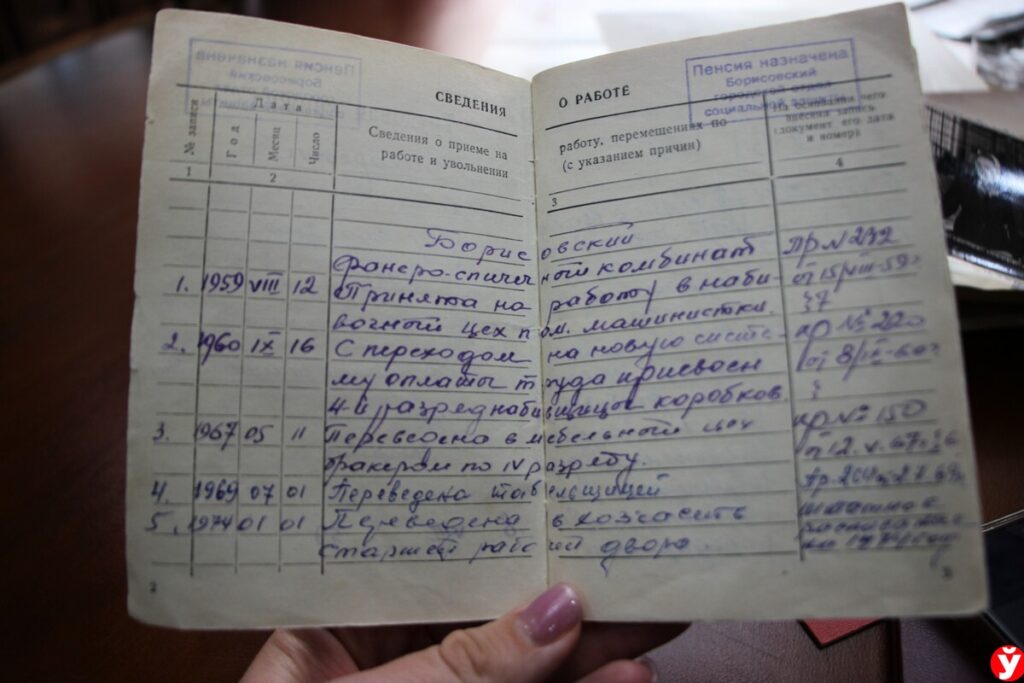 Пенсия назначена
Борисовский
Пенсия назначена
Борисовский
городской отдел
социальной защиты
СВЕДЕНИЯ О РАБОТЕ
№ записи
Дата
Год
Месяц
Число
Сведения о приеме на работу, перемещениях по
работе и увольнении (с указанием причин)
На основании чего
внесена запись
(документ, его дата
и номер)
1 2 3 4
Борисовский
фанеро-спичечный комбинат Пр N 232
1. 1959 VIII 12 Принята на работу в наби- от 15/VIII-59г
вочный цех пом. машинистки.
2. 1960 IX 16 С переходом на новую систе- пр № 220
му оплаты труда присвоен
4-й разряд набивщицы коробков.
3. 1967 05 11 Переведена в мебельный цех пр № 150
бракером по IV разряду. от 12.V-67г
4. 1969 07 01 Переведена табельщицей
5. 1974 01 01 Переведена в хозчасть штатное
старшей рабочей двора.
2
3
Ў